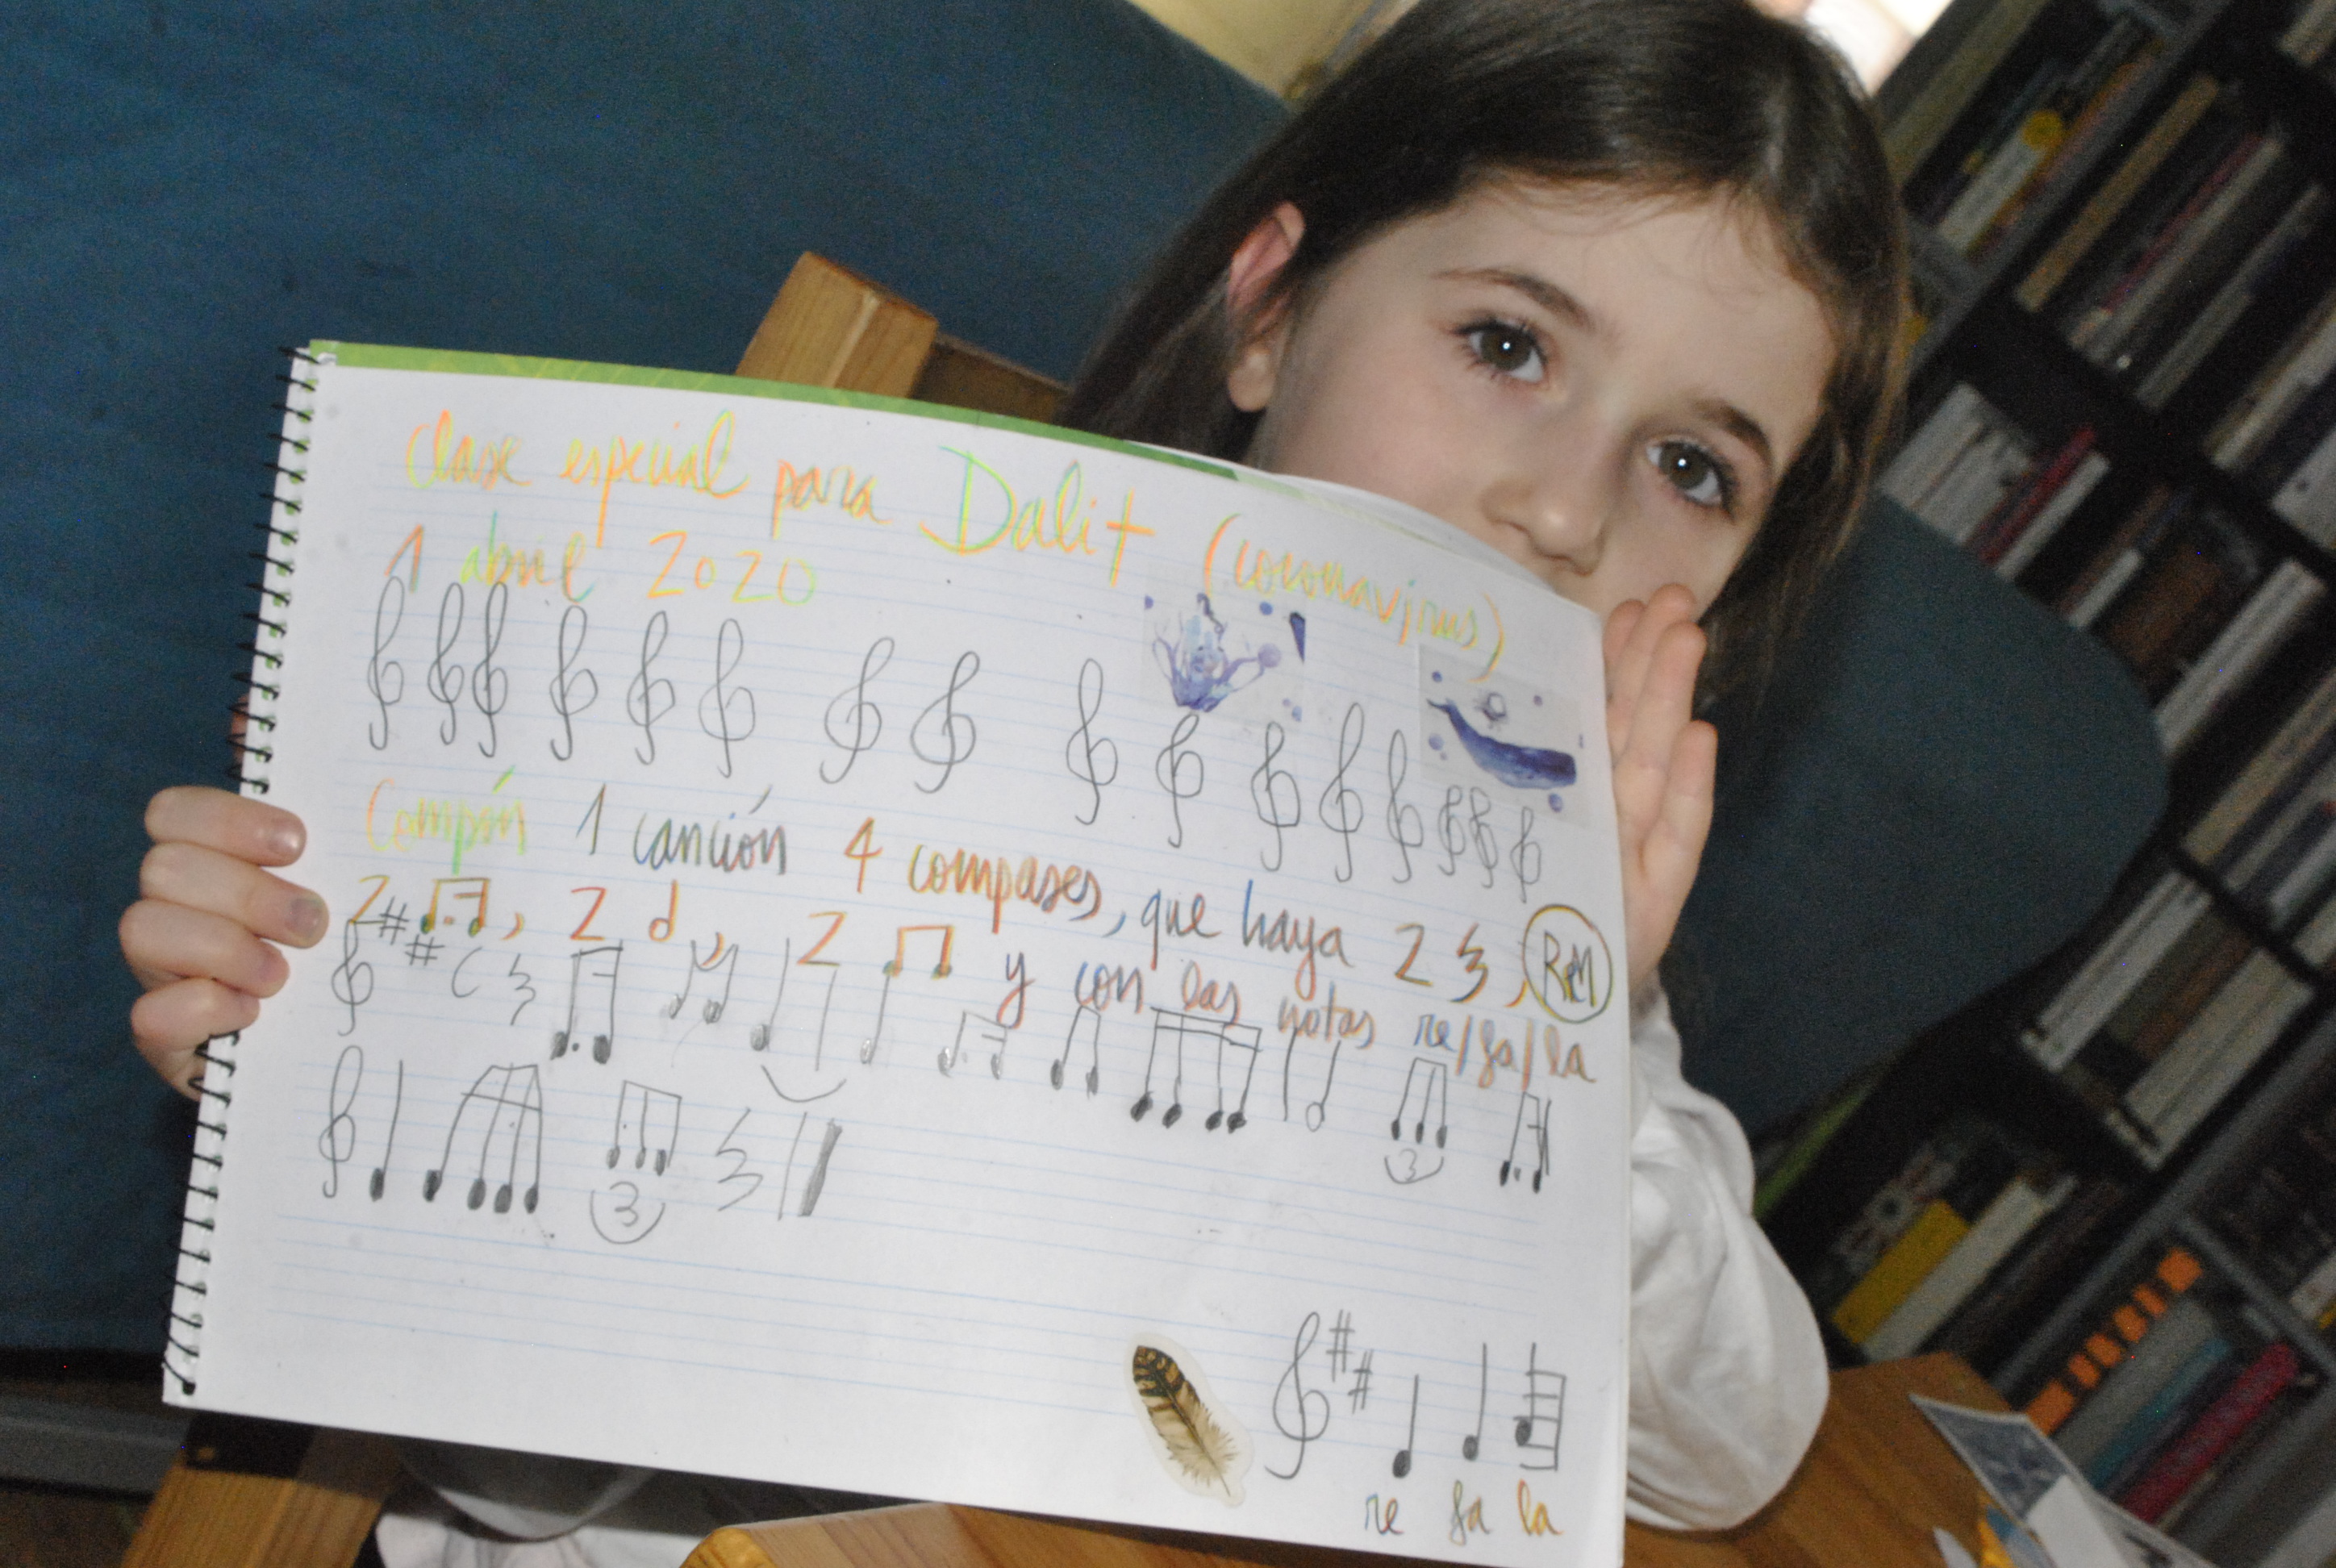 Clase especial para Dalit (coronavirus)
1 abril 2020
Compón 1 canción 4 compases, que haya 2 𝄽, ReM
2 ♫, 2 𝅗𝅥, 2 ♫ y con las notas re/fa/la
3
3
re fa la